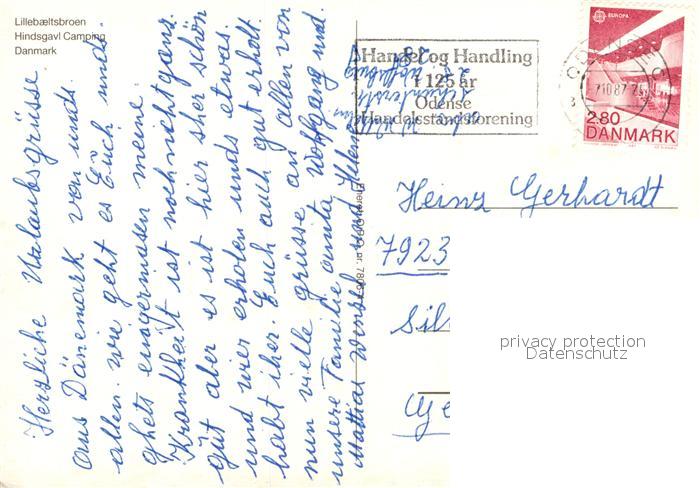 Lillebæltsbroen
Hindsgavl Camping
Danmark
Herzliche Urlaubsgrüsse
aus Dänemark von unds
allen. wie geht es Euch unds
ghets einigermasen meine
Krankheit ist noch nicht ganz
gut aber es ist hier sher schön
und wier erholen unds etwas.
habt iher Euch auch gut erholt.
nun vielle grüsse an allen von
unsere Familie anita Wolfgang und
Mattias
und
Handel og Handling
i 125 år
Odense
Handelsstandsforening
ODENSE C
71087
EUROPA
2.80
DANMARK
Heinz Gerhardt
7923
Sil
privacy protection
Datenschutz